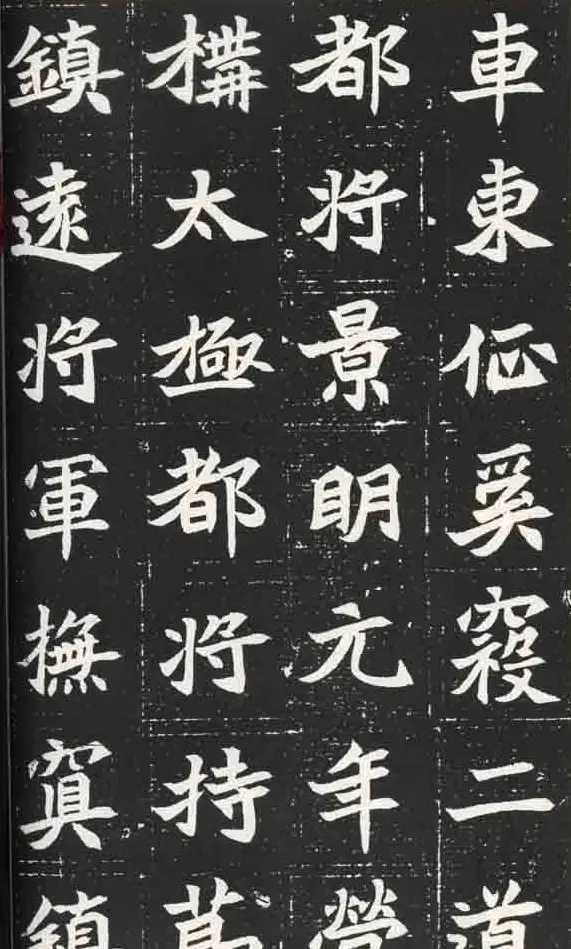 車東征奚寇二道
都将景眀元年營
構太極都将持莭
鎮遠将軍撫冥鎮